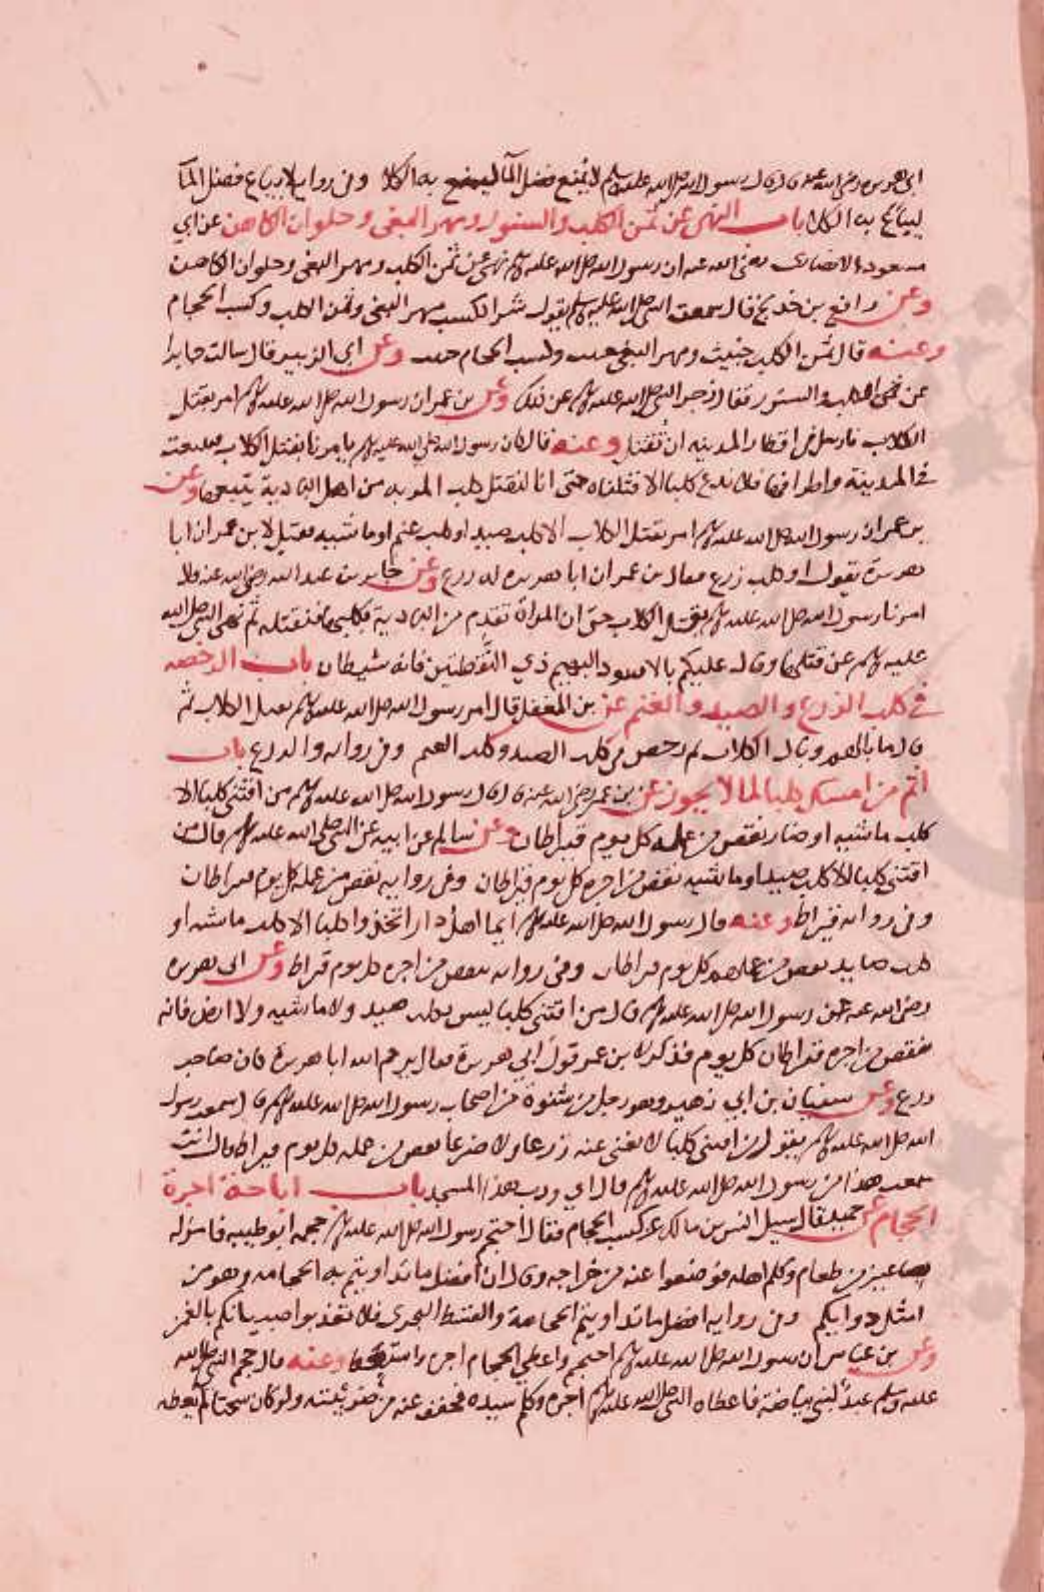 ابي هريرة رضي الله عنه قال قال رسول الله صلى الله عليه وسلم لا يمنع فضل الماء ليمنع به الكلا وفي رواية لا يباع فضل الماء
ليباع به الكلا باب النهي عن ثمن الكلب والسنور ومهر البغي وحلوان الكاهن عن ابي
مسعود الانصاري رضي الله عنه ان رسول الله صلى الله عليه وسلم نهى عن ثمن الكلب ومهر البغي وحلوان الكاهن
وعن رافع بن خديج قال سمعت النبي صلى الله عليه وسلم يقول شر الكسب مهر البغي وثمن الكلب وكسب الحجام
وعنه قال ثمن الكلب خبيث ومهر البغي خبيث وكسب الحجام خبيث وعن ابي الزبير قال سالت جابرا
عن ثمن الكلب والسنور فقال زجر النبي صلى الله عليه وسلم عن ذلك وعن بن عمر ان رسول الله صلى الله عليه وسلم امر بقتل
الكلاب فارسل في اقطار المدينة ان تقتل وعنه قال كان رسول الله صلى الله عليه وسلم يامرنا بقتل الكلاب
في المدينة واطرافها فلا ندع كلبا الا قتلناه حتى انا لنقتل كلب المرية من اهل البادية يتبعها وعن
بن عمر ان رسول الله صلى الله عليه وسلم امر بقتل الكلاب الا كلب صيد او كلب غنم او ماشيه فقيل لابن عمر ان ابا
هريرة يقول او كلب زرع فقال بن عمر ان ابا هريرة له زرع وعن جابر بن عبد الله رضي الله عنه قال
امرنا رسول الله صلى الله عليه وسلم بقتل الكلاب حتى ان المراة تقدم من البادية بكلبها فنقتله ثم نهى النبي صلى الله
عليه وسلم عن قتلها وقال عليكم بالاسود البهيم ذي النقطتين فانه شيطان باب الرخصه
في كلب الزرع والصيد والغنم عن بن المغفل قال امر رسول الله صلى الله عليه وسلم بقتل الكلاب ثم
قال ما بالهم وبال الكلاب ثم رخص في كلب الصيد وكلب الغنم وفي روايه والزرع باب
اثم من امسك كلبا لما لا يجوز عن بن عمر رضي الله عنه قال قال رسول الله صلى الله عليه وسلم من اقتنى كلبا الا
كلب ماشيه او ضار نقص من عمله كل يوم قيراطان وعن سالم عن ابيه عن النبي صلى الله عليه وسلم قال من
اقتنى كلبا الا كلب صيد او ماشيه نقص من اجره كل يوم قيراطان وفي روايه نقص من عمله كل يوم قيراطان
وفي روايه قيراط وعنه قال رسول الله صلى الله عليه وسلم ايما اهل دار اتخذوا كلبا الا كلب ماشيه او
كلب صايد نقص من عملهم كل يوم قيراطان وفي روايه ينقص من اجره كل يوم قيراط وعن ابي هريرة
رضي الله عنه عن رسول الله صلى الله عليه وسلم قال من اقتنى كلبا ليس بكلب صيد ولا ماشيه ولا ارض فانه
ينقص من اجره قيراطان كل يوم فذكر لابن عمر قول ابي هريرة فقال يرحم الله ابا هريرة كان صاحب
زرع وعن سفيان بن ابي زهير وهو رجل من شنوة من اصحاب رسول الله صلى الله عليه وسلم قال سمعت رسول
الله صلى الله عليه وسلم يقول من اقتنى كلبا لا يغني عنه زرعا ولا ضرعا نقص من عمله كل يوم قيراط قال انت
سمعت هذا من رسول الله صلى الله عليه وسلم قال اي ورب هذا المسجد باب اباحة اجرة
الحجام عن حميد قال سيل انس بن مالك عن كسب الحجام فقال احتجم رسول الله صلى الله عليه وسلم حجمه ابو طيبه فامر له
بصاعين من طعام وكلم اهله فوضعوا عنه من خراجه وقال ان افضل ما تداويتم به الحجامه وهو من
امثل دوايكم وفي روايه افضل ما تداويتم الحجامة والقسط البحري فلا تعذبوا صبيانكم بالغمز
وعن بن عباس ان رسول الله صلى الله عليه وسلم احتجم واعطى الحجام اجره واستعط وعنه قال حجم النبي صلى الله
عليه وسلم عبد لبني بياضة فاعطاه النبي صلى الله عليه وسلم اجره وكلم سيده فخفف عنه من ضريبته ولو كان سحتا لم يعطه